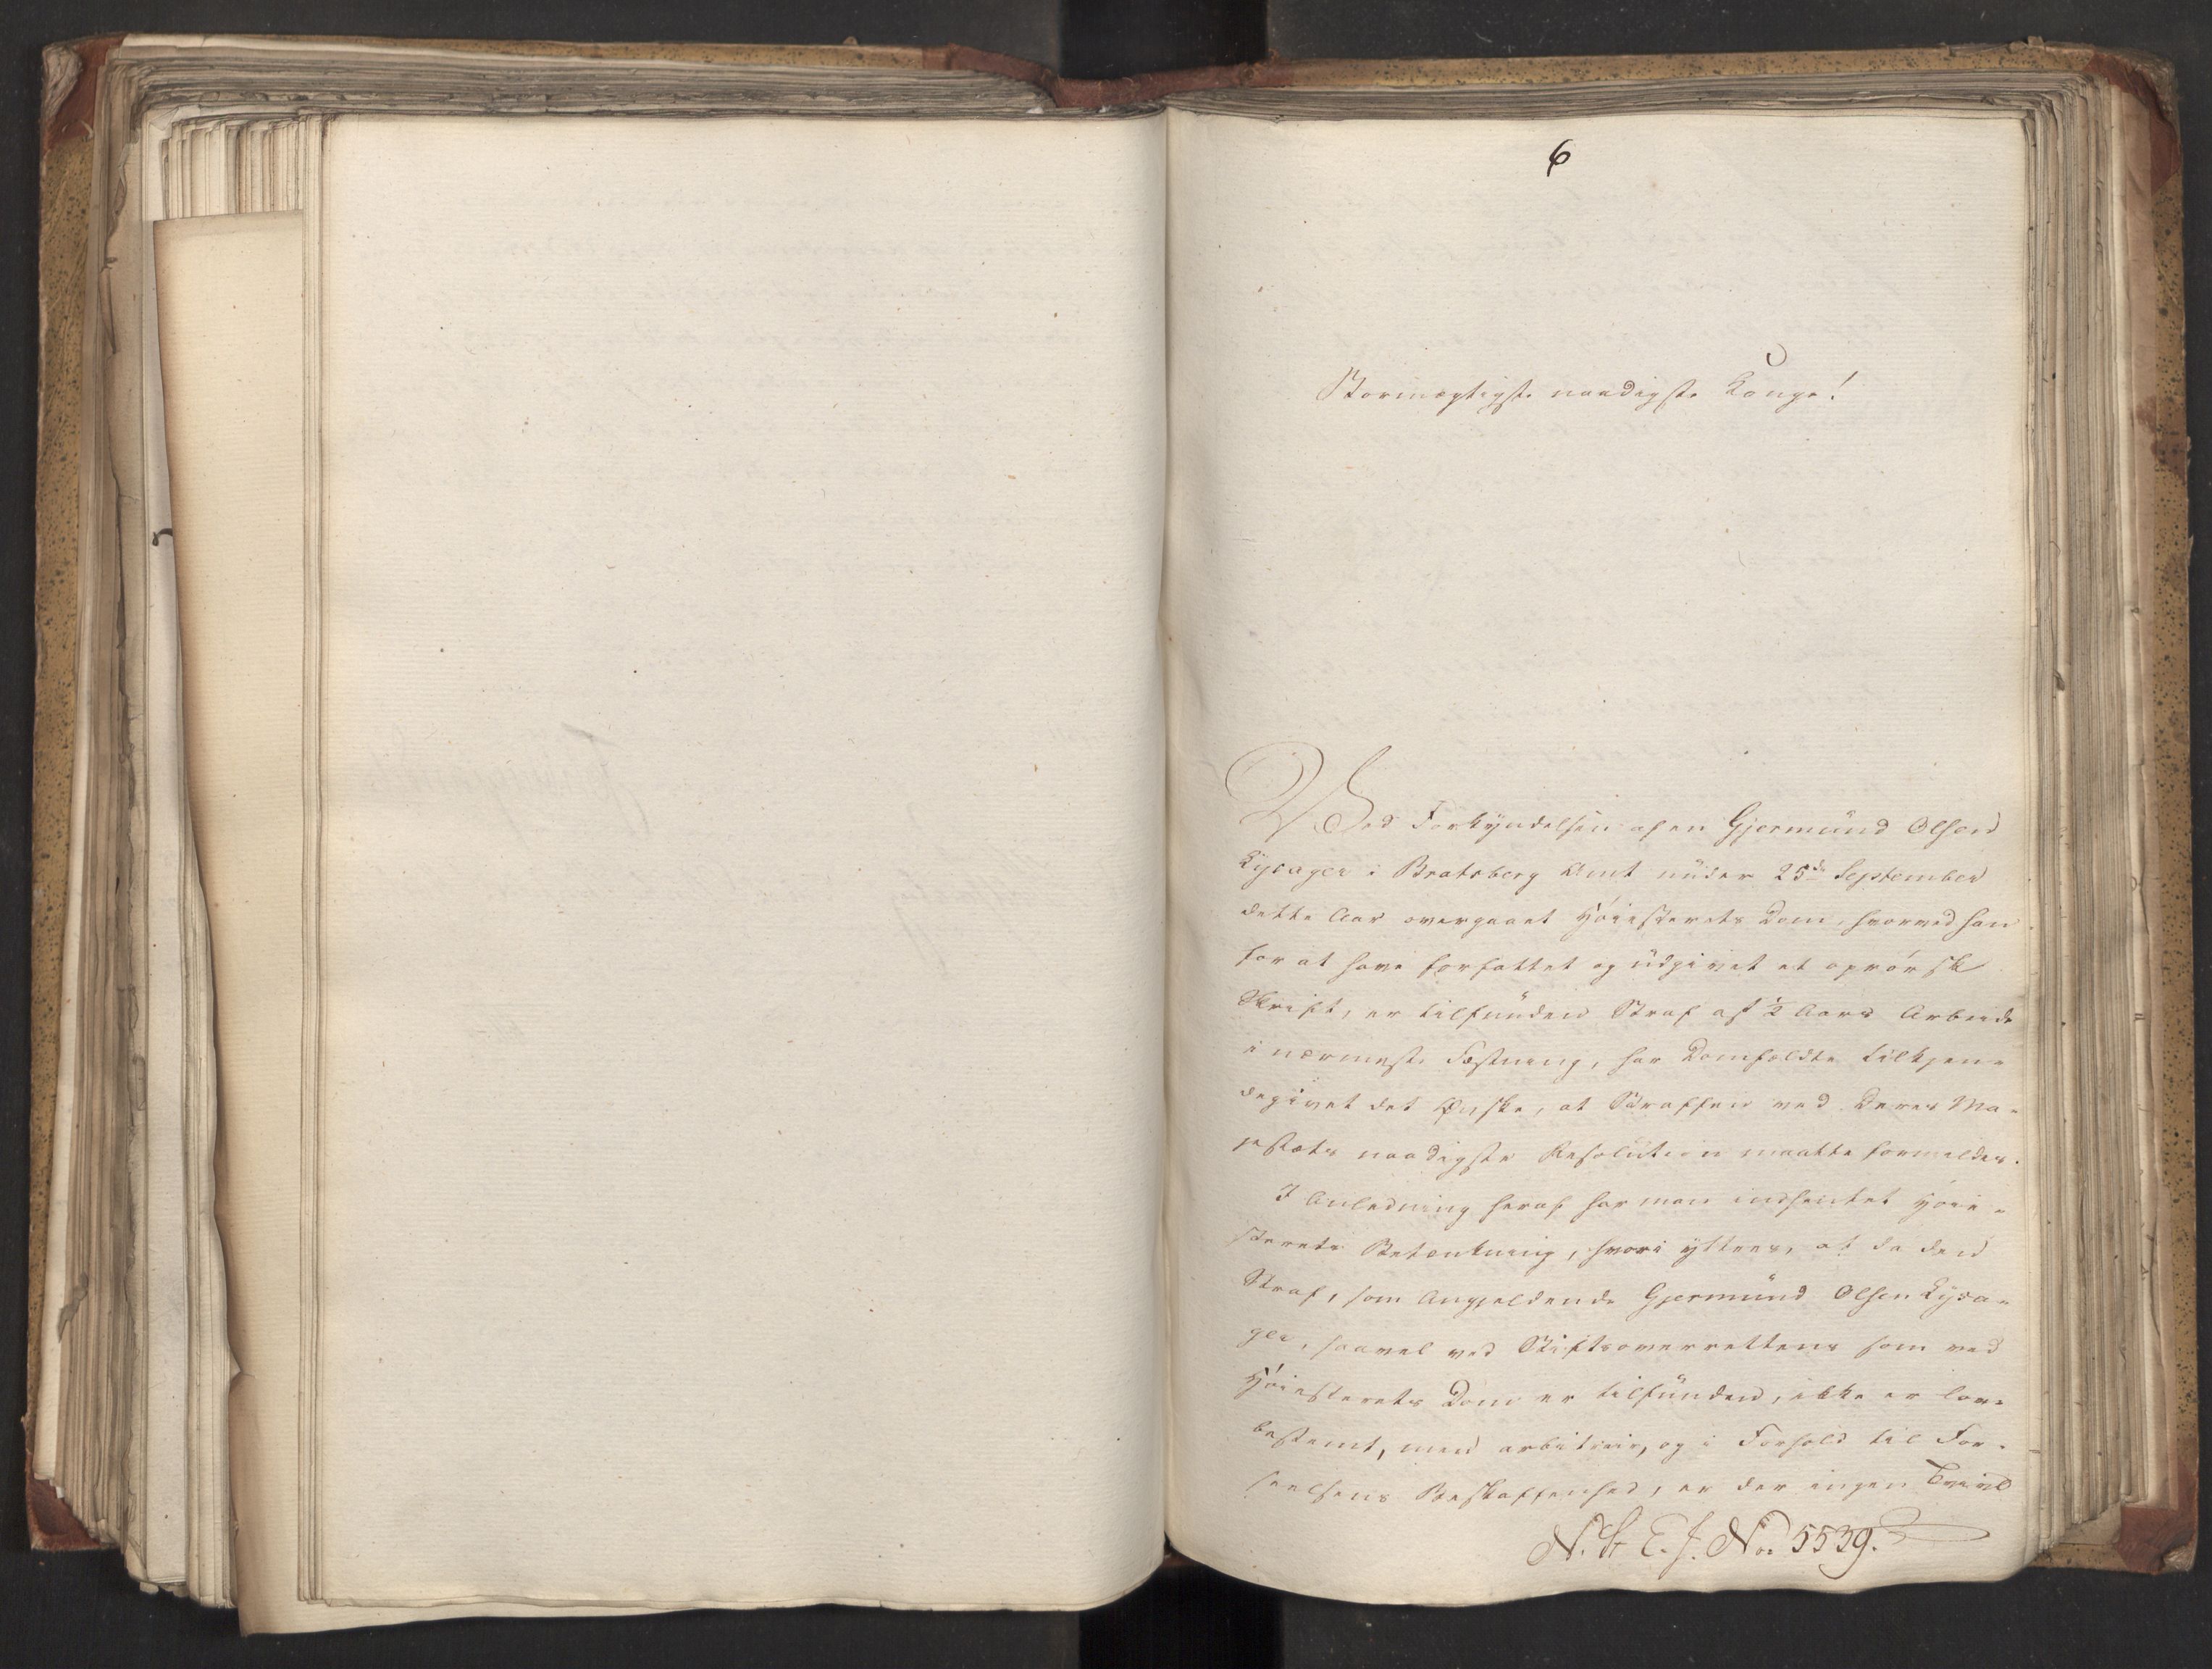 6
Stormægtigste naadigste Konge!
Ved Forkyndelsen af en Gjermund Olsen
i Bratsberg Amt under 25de September
dette Aar overgaaet Høiesterets Dom, hvorved han
for at have forfattet og udgivet et oprørsk
Skrift, er tilfunden Straf af ½ Aars Arbeide
i nærmeste Fæstning, har Domfældte tilkjen-
degivet det Ønske, at Straffen ved Deres Ma-
jestæts naadigste Resolution maatte formildes.
I Anledning heraf har man indhentet Høie-
sterets Betænkning, hvori yttres, at da den
Straf, som Angjeldende Gjermund Olsen
saavel ved Stiftsoverrettens som ved
Høiesterets Dom er tilfunden, ikke er lov-
bestemt, men arbitrair, og i Forhold til For-
seelsens Beskaffenhed, er der ingen Tvivl
N. St. E. J. No. 5539.